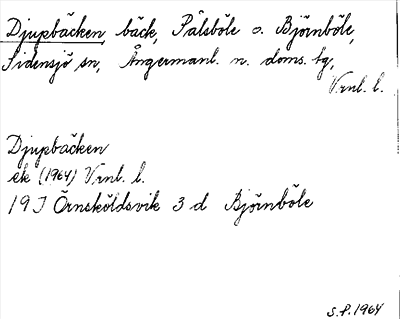 Djupbäcken, bäck, Pålsböle o. Björnböle,
Sidensjö sn, Ångermanl. n. doms. tg,
Vrnl. l.
Djupbäcken
ek (1964) Vrnl. l.
19 I Örnsköldsvik 3 d Björnböle
S.P. 1964